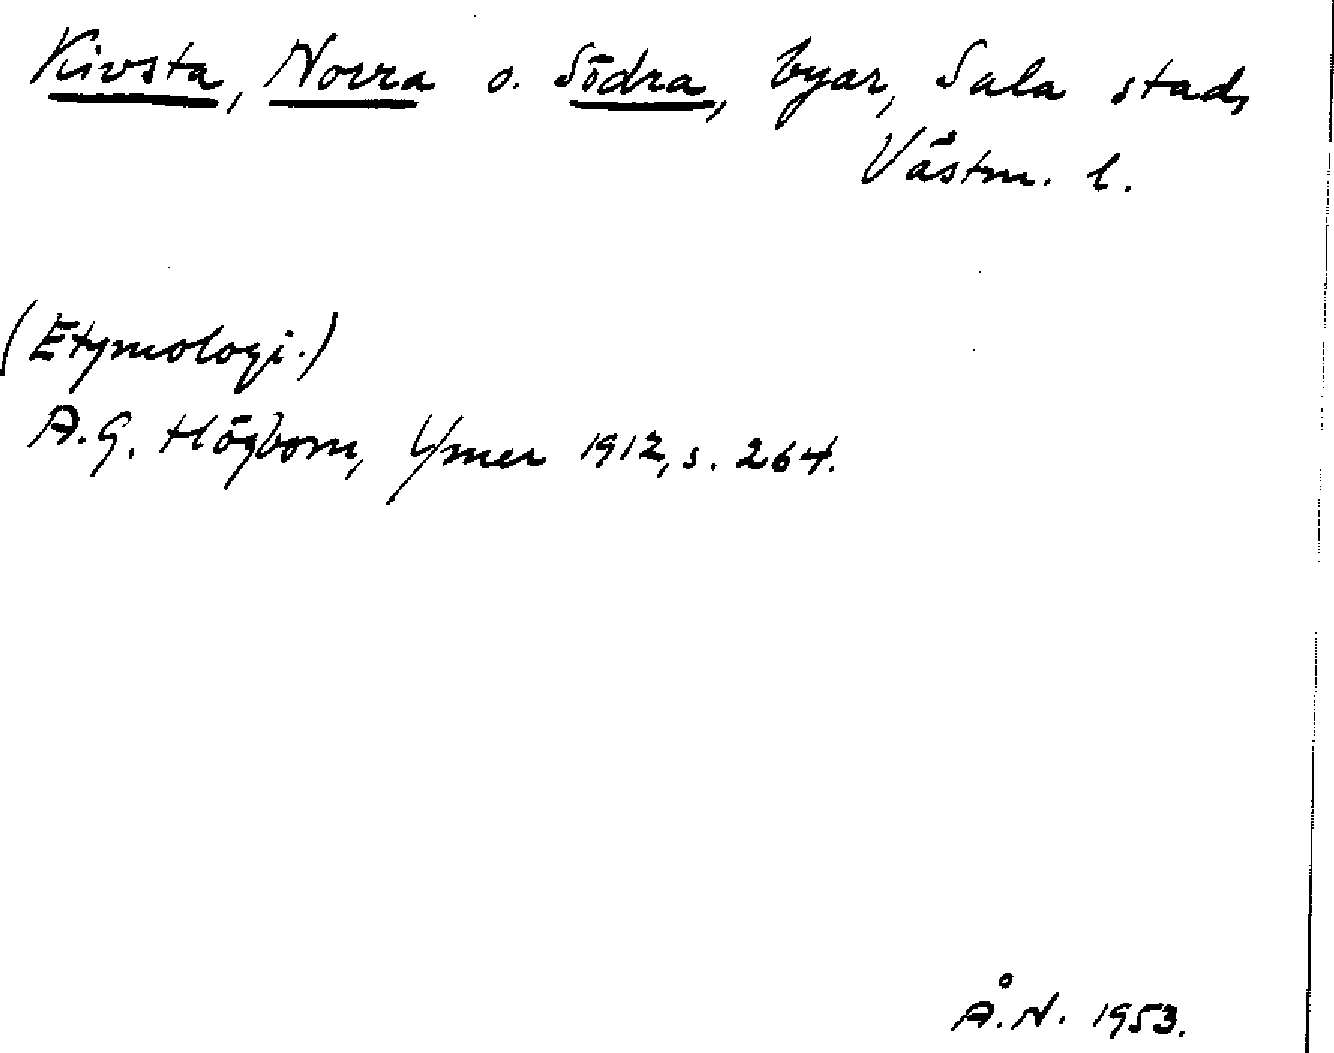 Kivsta, Norra o. Södra, byar, Sala stad,
Västm. l.
(Etymologi.)
A.G. Högbom, Ymer 1912, s. 264.
Å.N. 1953.